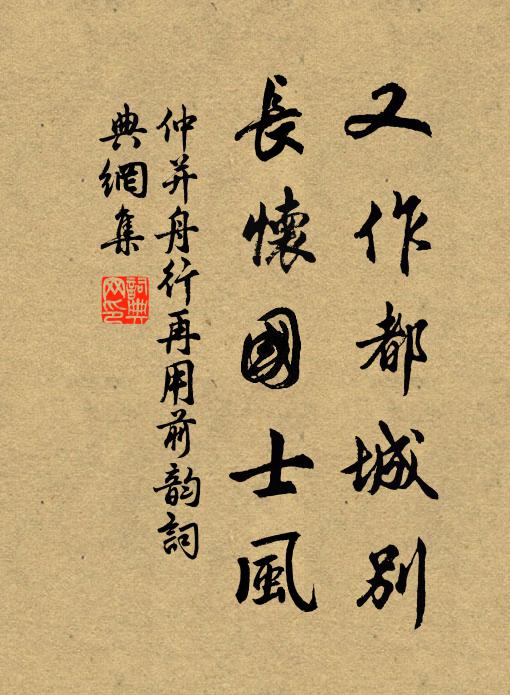 又作都城別
長懷國士風
仲并舟行再用前韵詞
典網集
詞典
网印